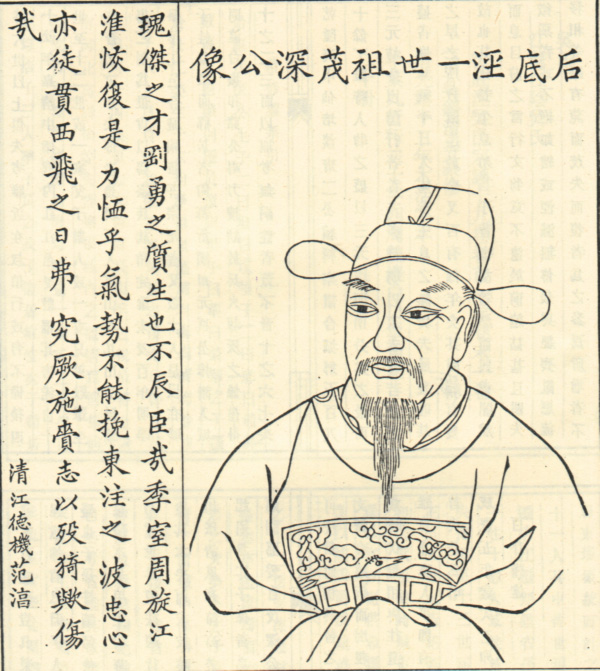 后底涇一世祖茂深公像
瑰傑之才剛勇之質生也不辰臣扵季室周旋江
淮恢復是力恤乎氣勢不能挽東注之波忠心
亦徒貫西飛之日弗究厥施賫志以歿猗歟傷
哉
清江德機范滈